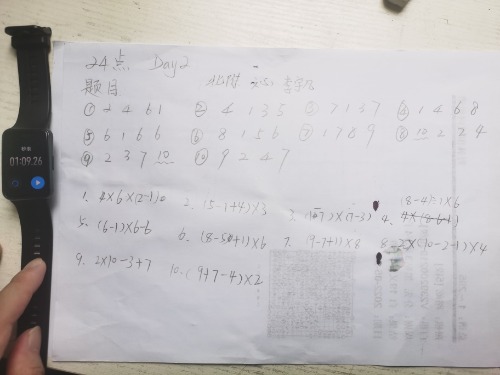 24点 Day2
题目
① 2 4 6 1 ② 4 1 3 5 ③ 7 1 3 7 ④ 1 4 6 8
⑤ 6 1 6 6 ⑥ 8 1 5 6 ⑦ 1 7 8 9 ⑧ 10 2 2 4
⑨ 2 3 7 10 ⑩ 9 2 4 7
1. 4×6×(2-1) 2. (5-1+4)×3 3. ×(7-3) 4. (8-4)×6
5. (6-1)×6-6 6. (8-5+1)×6 7. (9-7+1)×8 8.
9. 2×10-3+7 10. (9+7-4)×2
01:09.26